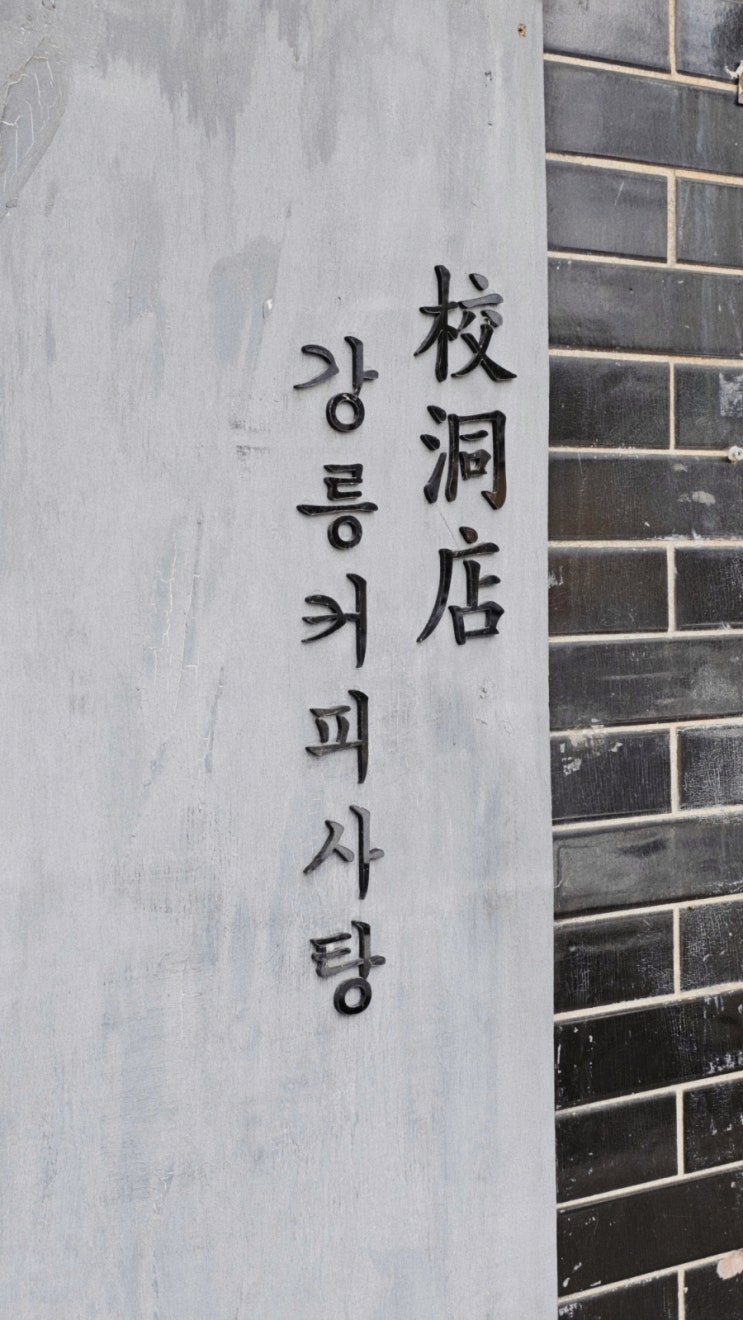 校洞店
강릉커피사탕